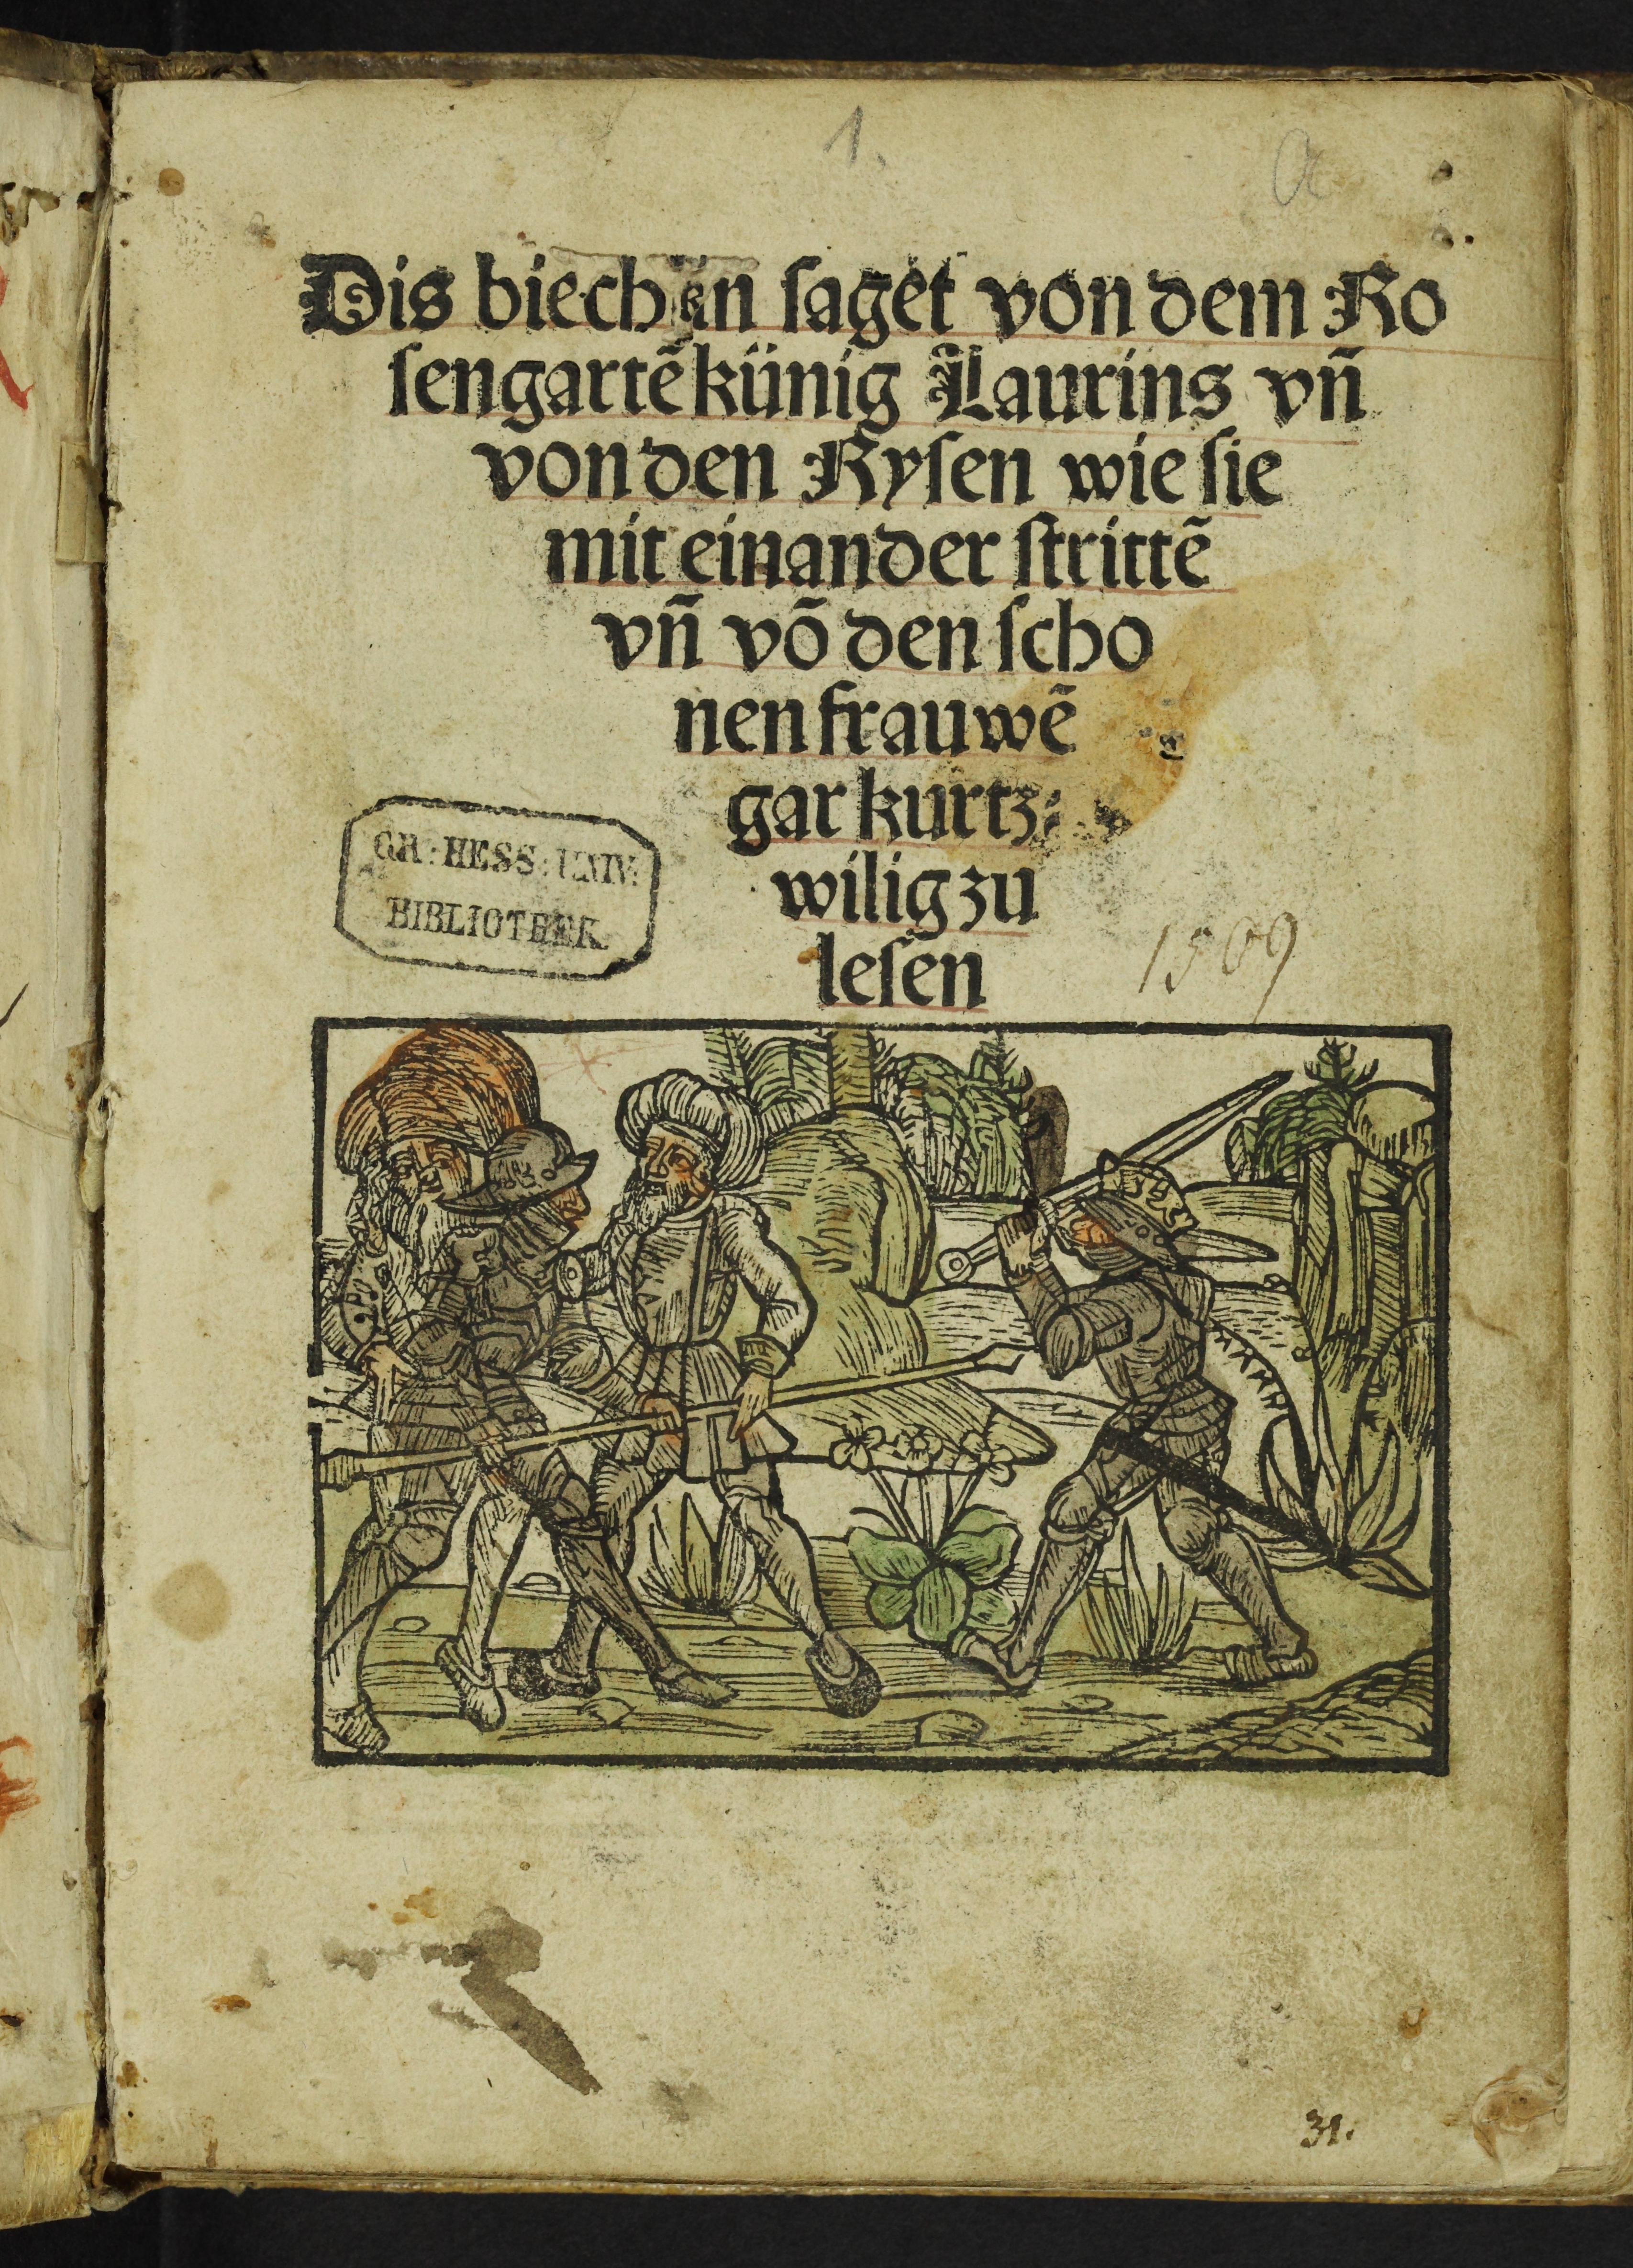 1.
a
Dis biechlin saget von dem Ro
sengartẽ künig Laurins vñ
von den Rysen wie sie
mit einander strittẽ
vñ võ den scho
nen frauwẽ
gar kurtz⸗
wilig zu
lesen
GR: HESS: UNIV:
BIBLIOTHEK
1509
31.